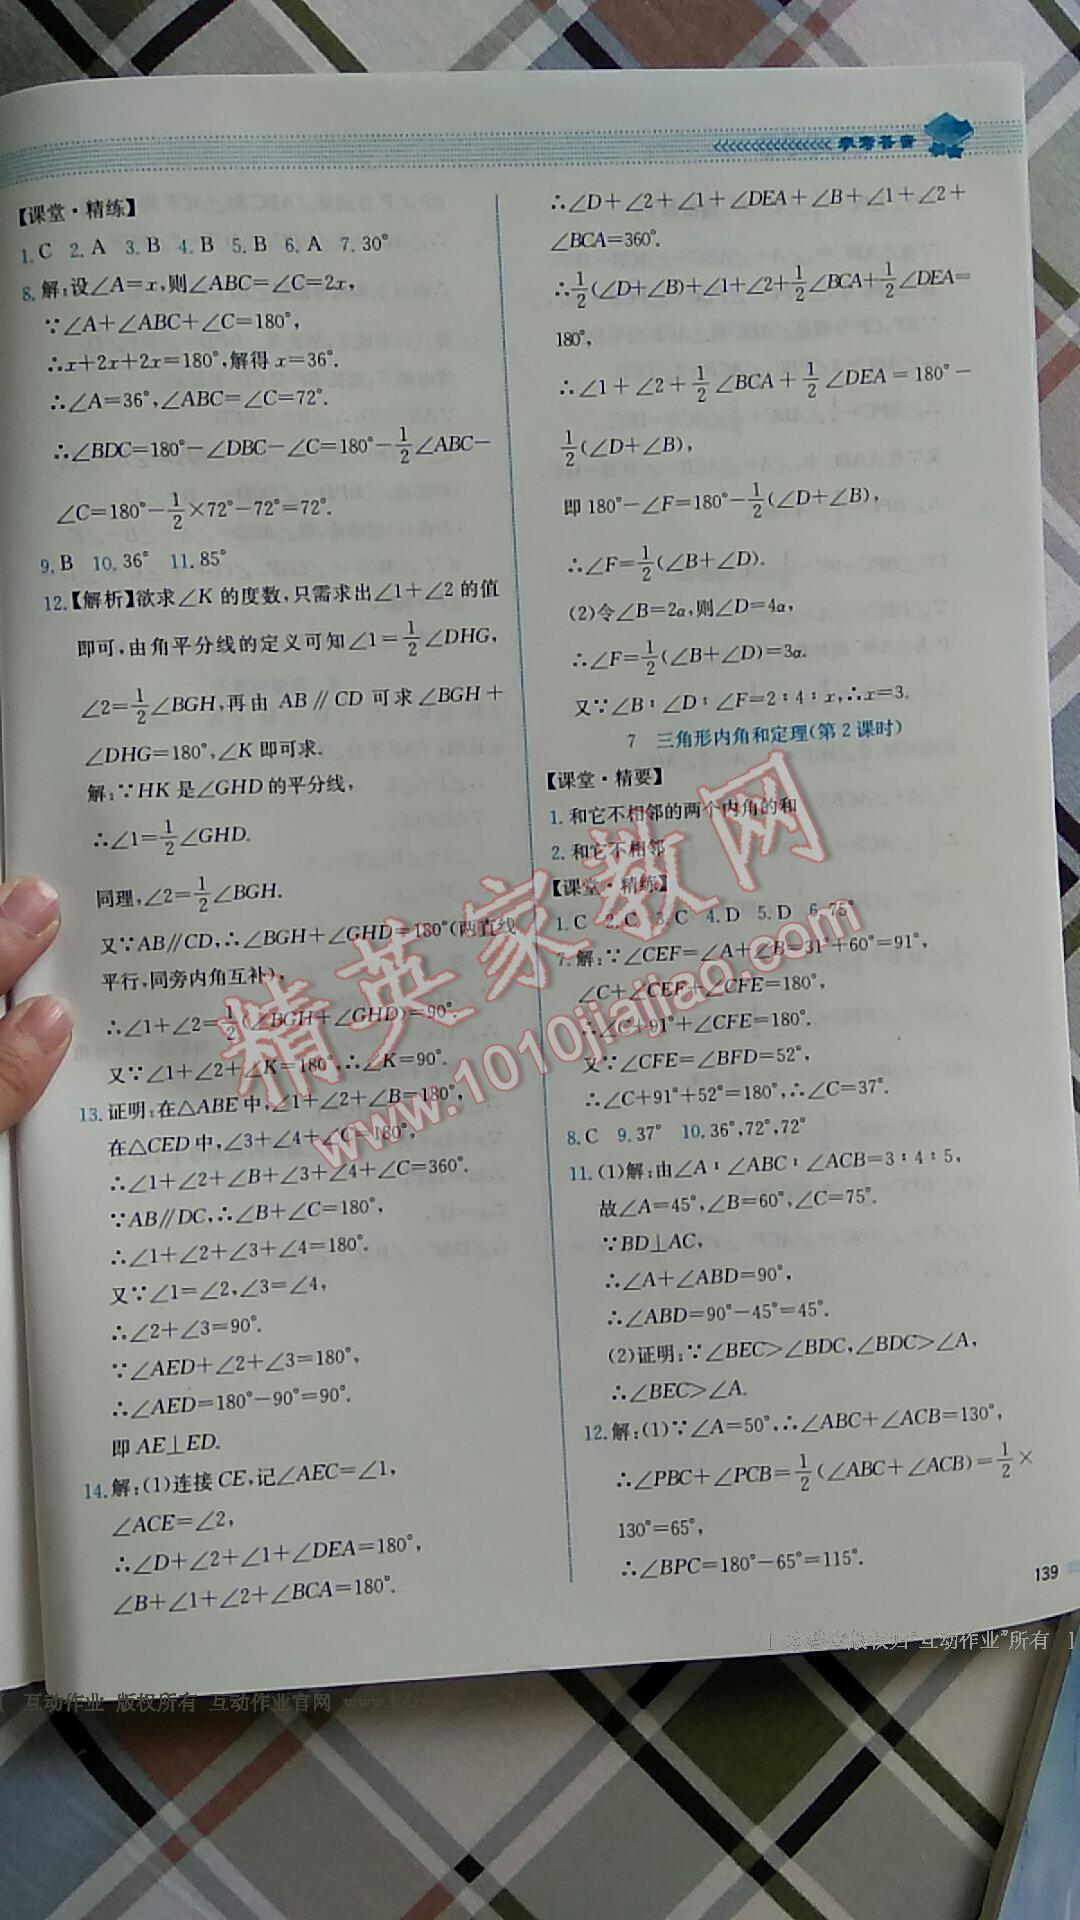 参考答案
【课堂·精练】
1. C 2. A 3. B 4. B 5. B 6. A 7. 30°
8. 解:设∠A=x,则∠ABC=∠C=2x,
∵∠A+∠ABC+∠C=180°,
∴x+2x+2x=180°,解得 x=36°.
∴∠A=36°,∠ABC=∠C=72°.
∴∠BDC=180°-∠DBC-∠C=180°-1/2∠ABC-
∠C=180°-1/2×72°-72°=72°.
9. B 10. 36° 11. 85°
12.【解析】欲求∠K 的度数,只需求出∠1+∠2 的值
即可,由角平分线的定义可知∠1=1/2∠DHG,
∠2=1/2∠BGH,再由 AB∥CD 可求∠BGH+
∠DHG=180°,∠K 即可求.
解:∵HK 是∠GHD 的平分线,
∴∠1=1/2∠GHD.
同理,∠2=1/2∠BGH.
又∵AB∥CD,∴∠BGH+∠GHD=180°(两直线
平行,同旁内角互补),
∴∠1+∠2=1/2(∠BGH+∠GHD)=90°.
又∵∠1+∠2+∠K=180°,∴∠K=90°.
13. 证明:在△ABE 中,∠1+∠2+∠B=180°,
在△CED 中,∠3+∠4+∠C=180°,
∴∠1+∠2+∠B+∠3+∠4+∠C=360°.
∵AB∥DC,∴∠B+∠C=180°,
∴∠1+∠2+∠3+∠4=180°.
又∵∠1=∠2,∠3=∠4,
∴∠2+∠3=90°.
∵∠AED+∠2+∠3=180°,
∴∠AED=180°-90°=90°.
即 AE⊥ED.
14. 解:(1)连接 CE,记∠AEC=∠1,
∠ACE=∠2,
∴∠D+∠2+∠1+∠DEA=180°,
∠B+∠1+∠2+∠BCA=180°.
∴∠D+∠2+∠1+∠DEA+∠B+∠1+∠2+
∠BCA=360°.
∴1/2(∠D+∠B)+∠1+∠2+1/2∠BCA+1/2∠DEA=
180°,
∴∠1+∠2+1/2∠BCA+1/2∠DEA=180°-
1/2(∠D+∠B),
即 180°-∠F=180°-1/2(∠D+∠B),
∴∠F=1/2(∠B+∠D).
(2)令∠B=2α,则∠D=4α,
∴∠F=1/2(∠B+∠D)=3α.
又∵∠B∶∠D∶∠F=2∶4∶x,∴x=3.
7 三角形内角和定理(第 2 课时)
【课堂·精要】
1. 和它不相邻的两个内角的和
2. 和它不相邻
【课堂·精练】
1. C 2. C 3. C 4. D 5. D 6. 75°
7. 解:∵∠CEF=∠A+∠B=31°+60°=91°,
∠C+∠CEF+∠CFE=180°,
∴∠C+91°+∠CFE=180°.
又∵∠CFE=∠BFD=52°,
∴∠C+91°+52°=180°,∴∠C=37°.
8. C 9. 37° 10. 36°,72°,72°
11. (1)解:由∠A∶∠ABC∶∠ACB=3∶4∶5,
故∠A=45°,∠B=60°,∠C=75°.
∵BD⊥AC,
∴∠A+∠ABD=90°,
∴∠ABD=90°-45°=45°.
(2)证明:∵∠BEC>∠BDC,∠BDC>∠A,
∴∠BEC>∠A.
12. 解:(1)∵∠A=50°,∴∠ABC+∠ACB=130°,
∴∠PBC+∠PCB=1/2(∠ABC+∠ACB)=1/2×
130°=65°,
∴∠BPC=180°-65°=115°.
139
精英家教网
www.1010jiajiao.com
版权归“互动作业”所有 ]
[ 互动作业 版权所有 互动作业官网